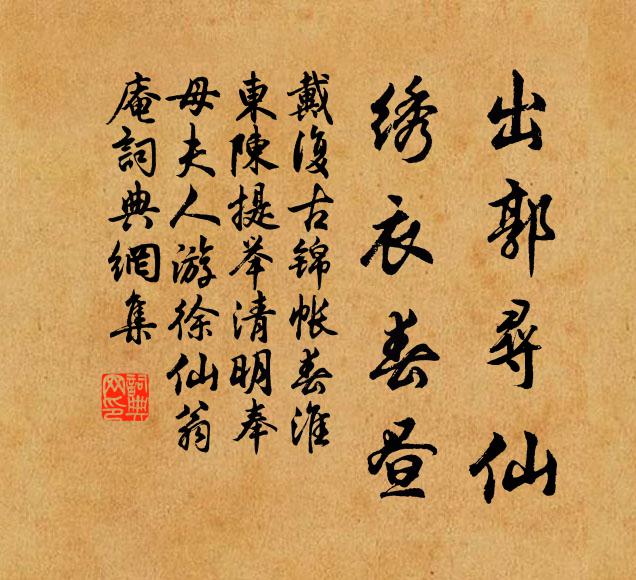 出郭尋仙
绣衣春昼
戴復古錦帳春淮
東陳提举清明奉
母夫人游徐仙翁
庵詞典網集
詞典网印